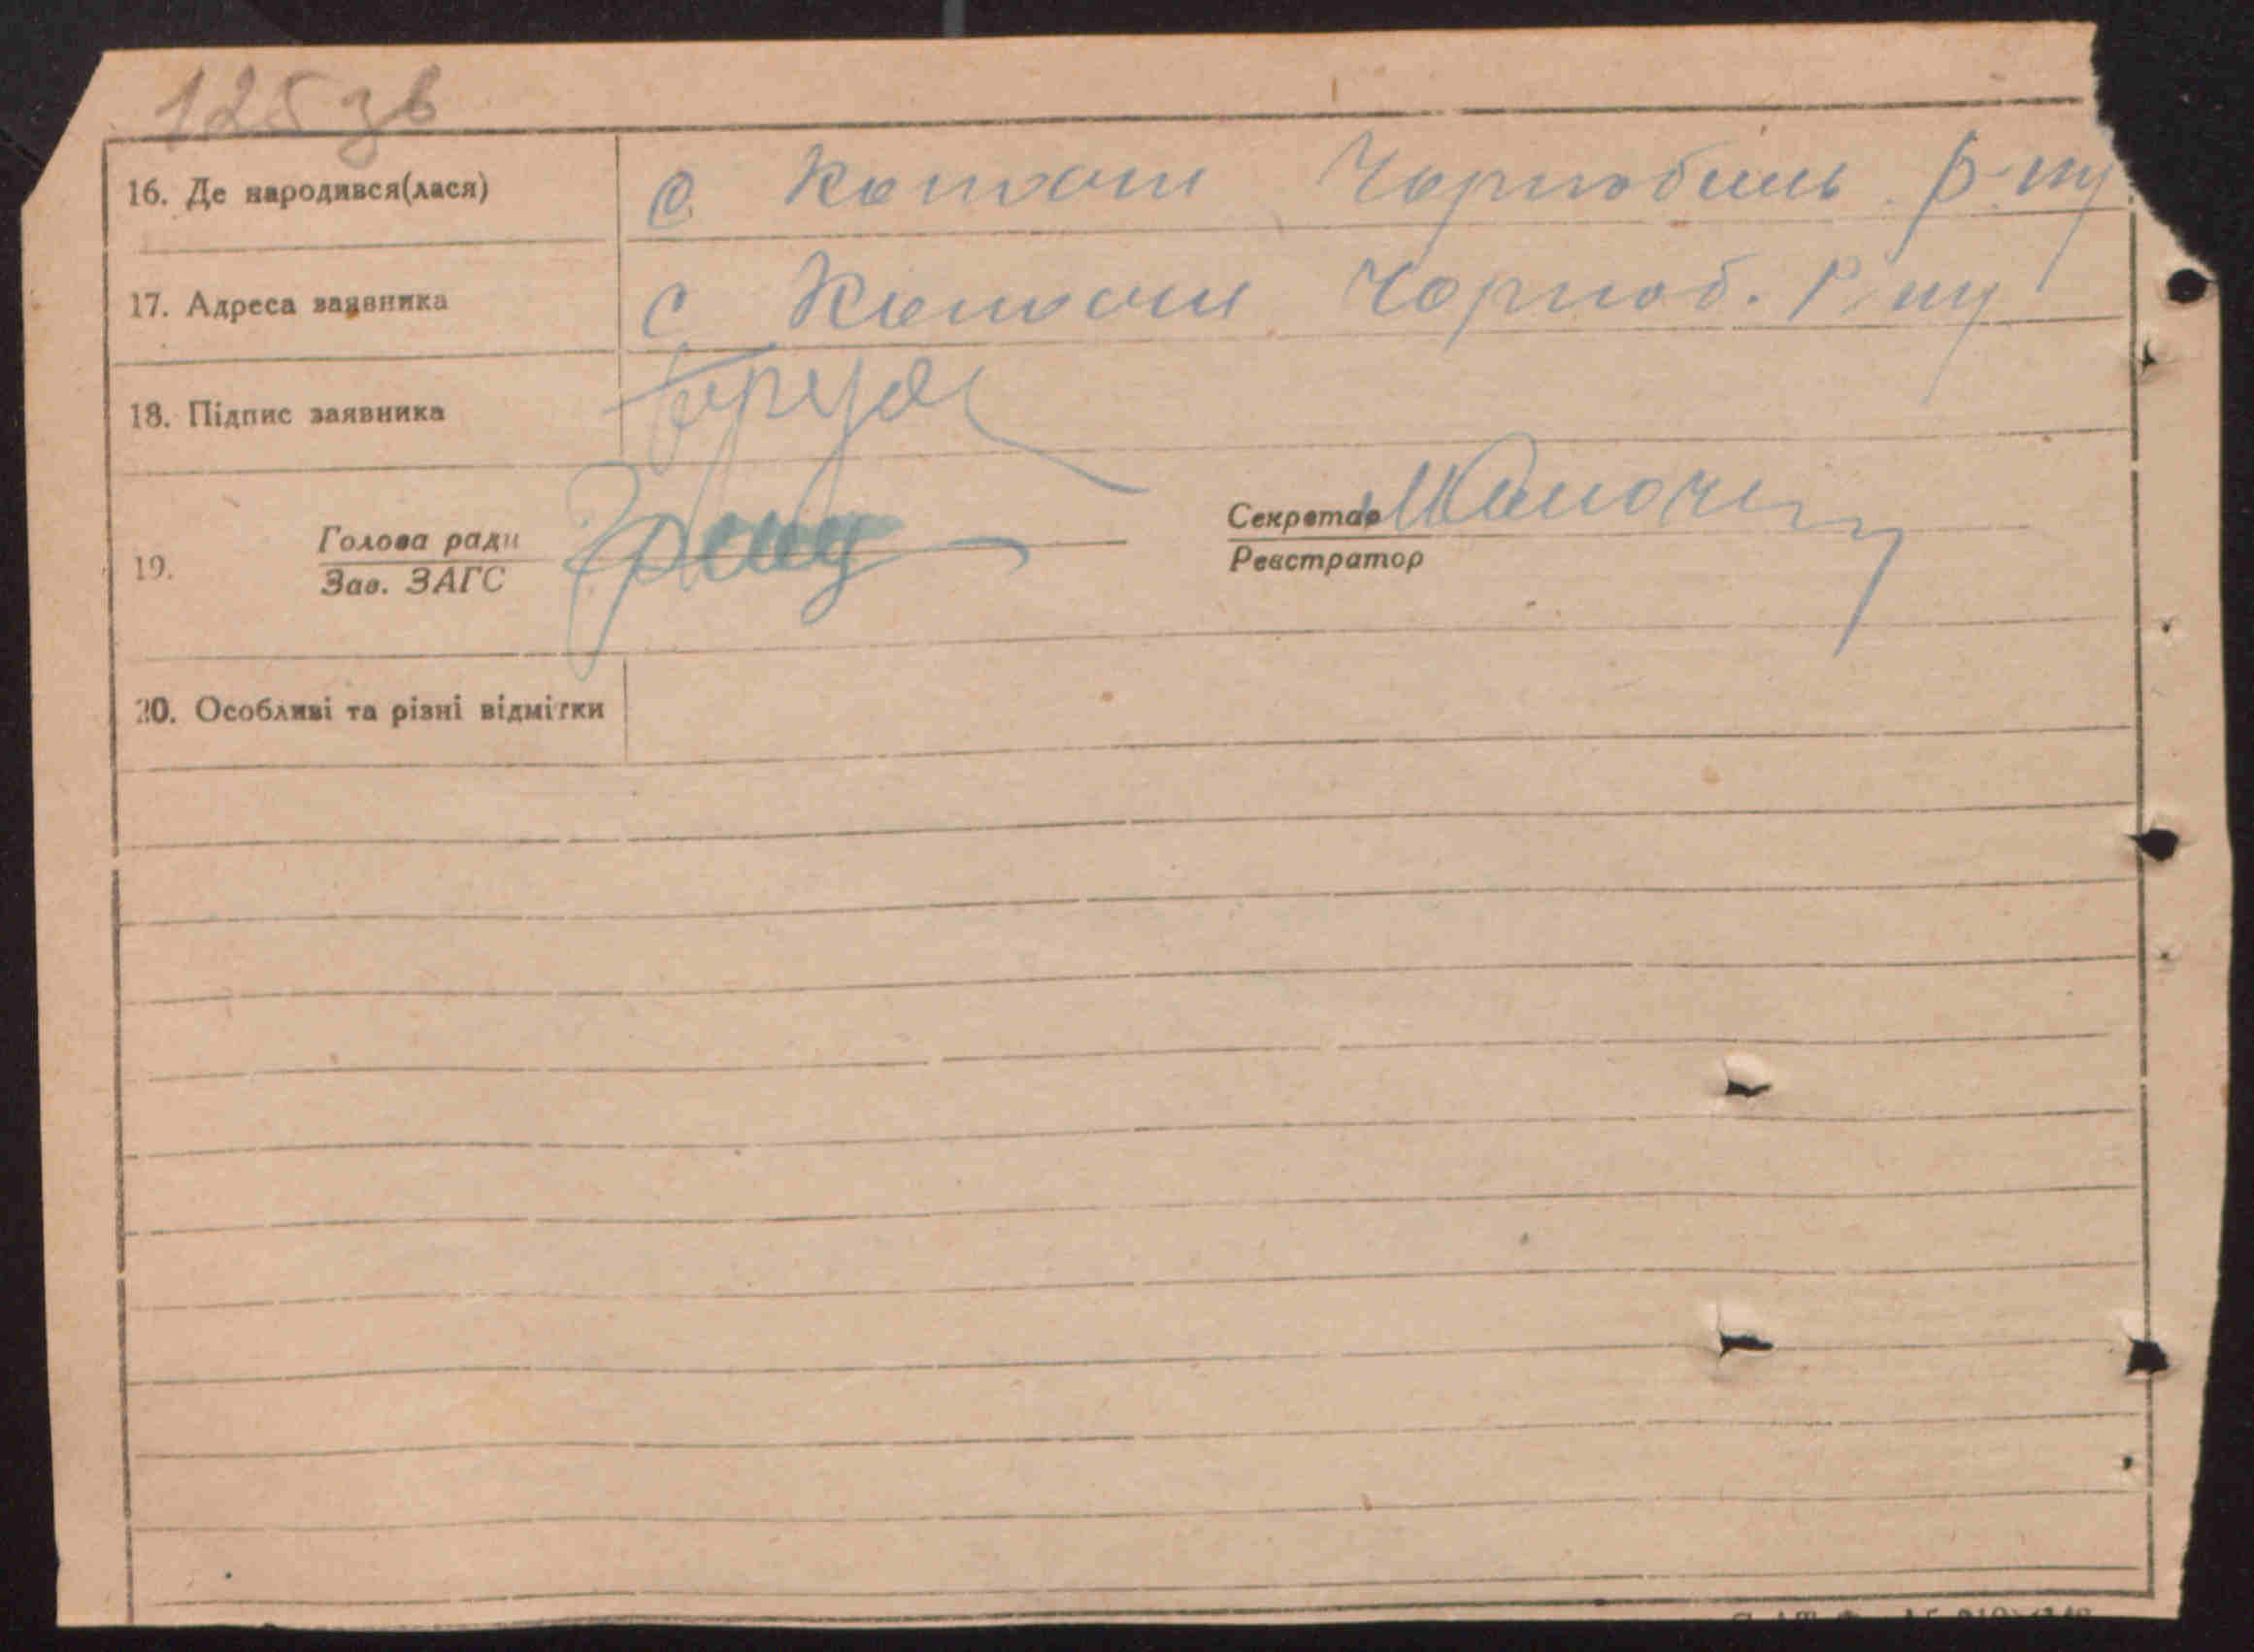 125 зв
16. Де народився(лася) с Копачи Чорнобиль р-ну
17. Адреса заявника с Копачи Чорноб. Р-ну
18. Підпис заявника
19. Голова ради Секретар
Зав. ЗАГС Реєстратор
20. Особливі та різні відмітки